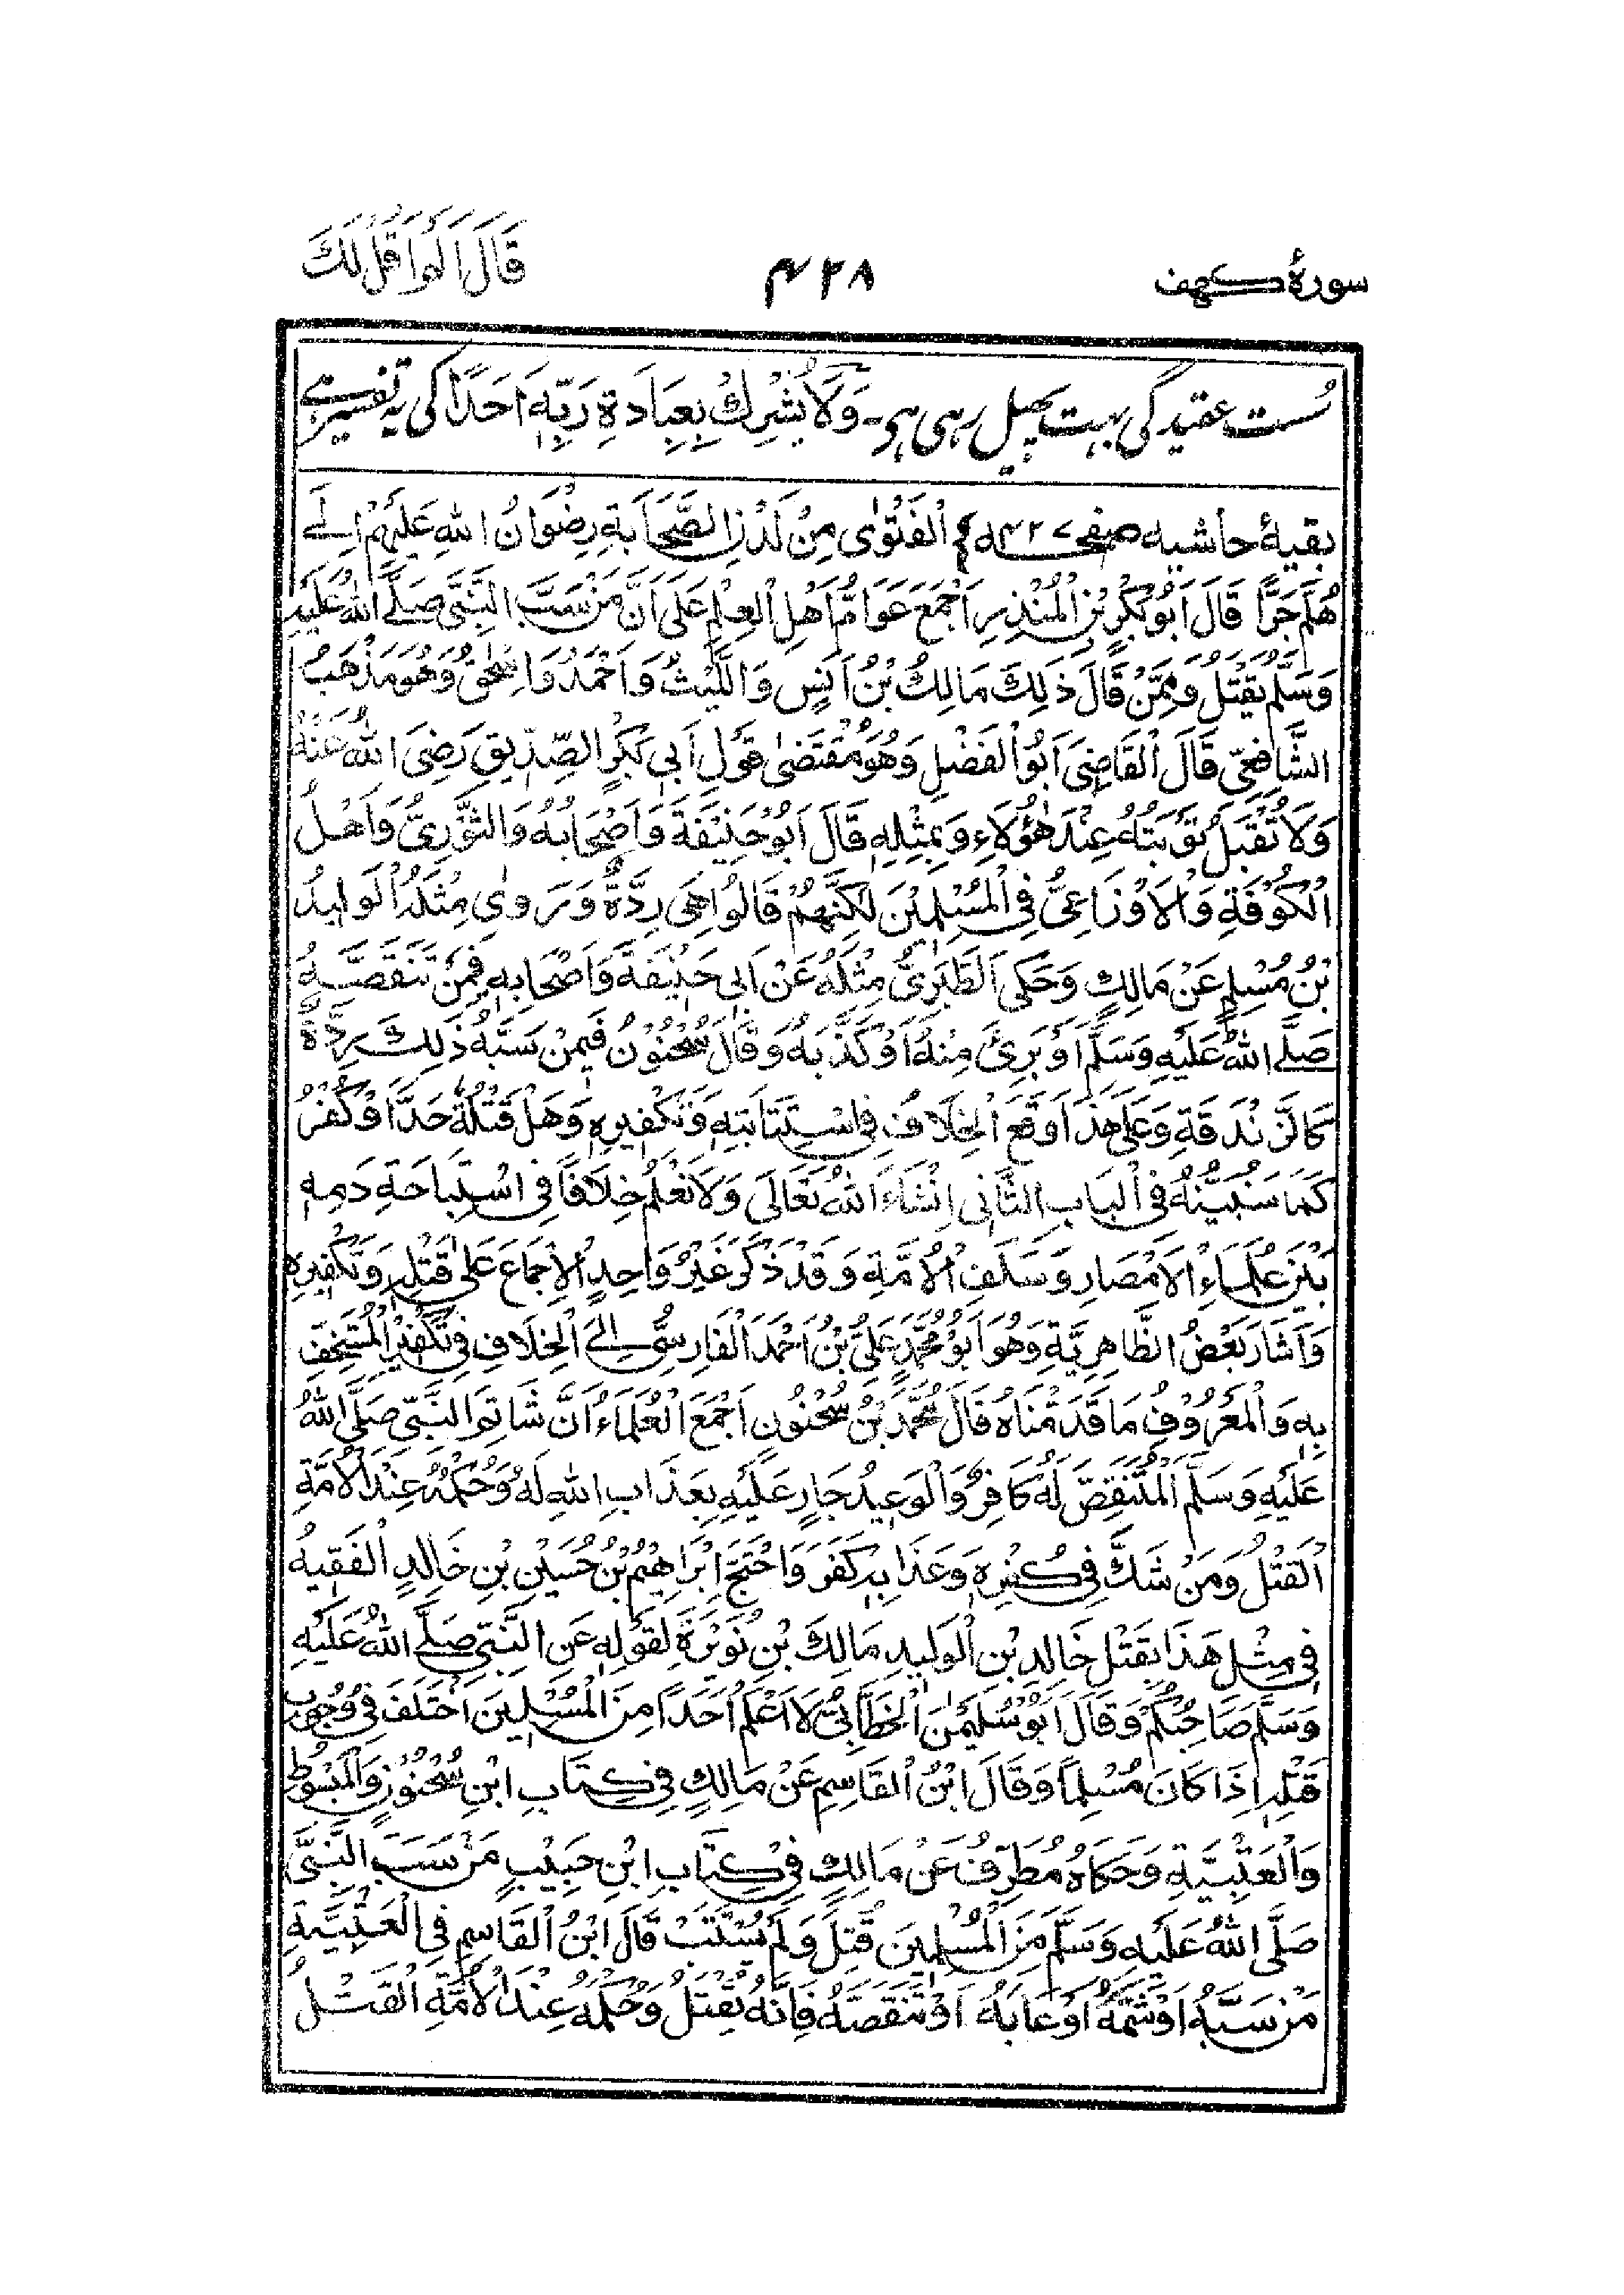 سورۂ کہف ۴۲۸ قَالَ اَلَمْ اَقُلْ لَكَ
سُست عقیدگی بہت پھیل رہی ہو۔ وَلَا يُشْرِكْ بِعِبَادَةِ رَبِّهٖٓ اَحَدًا کی یہ تفسیر ہے
بقیۂ حاشیہ صفحہ ۴۲۷ اَلْفَتْوٰى مِنْ لَدُنِ الصَّحَابَةِ رِضْوَانُ اللهِ عَلَيْهِمْ اِلٰى
هَلُمَّ جَرًّا قَالَ اَبُوْ بَكْرِ بْنُ الْمُنْذِرِ اَجْمَعَ عَوَامُّ اَهْلِ الْعِلْمِ عَلٰى اَنَّ مَنْ سَبَّ النَّبِيَّ صَلَّى اللهُ عَلَيْهِ
وَسَلَّمَ يُقْتَلُ وَمِمَّنْ قَالَ ذٰلِكَ مَالِكُ بْنُ اَنَسٍ وَاللَّيْثُ وَاَحْمَدُ وَاِسْحٰقُ وَهُوَ مَذْهَبُ
الشَّافِعِيِّ قَالَ الْقَاضِيَ اَبُوالْفَضْلِ وَهُوَ مُقْتَضٰى قَوْلِ اَبِيْ بَكْرٍ الصِّدِّيْقِ رَضِيَ اللهُ عَنْهُ
وَلَا تُقْبَلُ تَوْبَتُهُ عِنْدَ هٰؤُلَاءِ وَبِمِثْلِهٖ قَالَ اَبُوْ حَنِيْفَةَ وَاَصْحَابُهُ وَالثَّوْرِيُّ وَاَهْلُ
الْكُوْفَةِ وَالْاَوْزَاعِيُّ فِي الْمُسْلِمِيْنَ لٰكِنَّهُمْ قَالُوْا هِيَ رِدَّةٌ وَرَوٰى مِثْلَهُ الْوَلِيْدُ
بْنُ مُسْلِمٍ عَنْ مَالِكٍ وَحَكَى الطَّبَرِيُّ مِثْلَهُ عَنْ اَبِيْ حَنِيْفَةَ وَاَصْحَابِهٖ فِيْمَنْ تَنَقَّصَهُ
صَلَّى اللهُ عَلَيْهِ وَسَلَّمَ اَوْ بَرِئَ مِنْهُ اَوْ كَذَّبَهُ وَقَالَ سُحْنُوْنُ فِيْمَنْ سَبَّهُ ذٰلِكَ رِدَّةٌ
كَالزَّنْدَقَةِ وَعَلٰى هٰذَا وَقَعَ الْخِلَافُ فِي اسْتِتَابَتِهٖ وَتَكْفِيْرِهٖ وَهَلْ قَتْلُهُ حَدًّا اَوْ كُفْرٌ
كَمَا سَنُبَيِّنُهُ فِي الْبَابِ الثَّانِيْ اِنْشَاءَ اللهُ تَعَالٰى وَلَا نَعْلَمُ خِلَافًا فِي اسْتِبَاحَةِ دَمِهٖ
بَيْنَ عُلَمَاءِ الْاَمْصَارِ وَسَلَفِ الْاُمَّةِ وَقَدْ ذَكَرَ غَيْرُ وَاحِدٍ الْاِجْمَاعَ عَلٰى قَتْلِهٖ وَتَكْفِيْرِهٖ
وَاَشَارَ بَعْضُ الظَّاهِرِيَّةِ وَهُوَ اَبُوْ مُحَمَّدٍ عَلِيُّ بْنُ اَحْمَدَ الْفَارِسِيُّ اِلَى الْخِلَافِ فِيْ تَكْفِيْرِ الْمُسْتَخِفِّ
بِهٖ وَالْمَعْرُوْفُ مَا قَدَّمْنَاهُ قَالَ مُحَمَّدُ بْنُ سُحْنُوْنٍ اَجْمَعَ الْعُلَمَاءُ اَنَّ شَاتِمَ النَّبِيِّ صَلَّى اللهُ
عَلَيْهِ وَسَلَّمَ الْمُتَنَقِّصَ لَهُ كَافِرٌ وَالْوَعِيْدُ جَارٍ عَلَيْهِ بِعَذَابِ اللهِ لَهُ وَحُكْمُهُ عِنْدَ الْاُمَّةِ
الْقَتْلُ وَمَنْ شَكَّ فِيْ كُفْرِهٖ وَعَذَابِهٖ كَفَرَ وَاحْتَجَّ اِبْرَاهِيْمُ بْنُ حُسَيْنِ بْنِ خَالِدٍ الْفَقِيْهُ
فِيْ مِثْلِ هٰذَا بِقَتْلِ خَالِدِ بْنِ الْوَلِيْدِ مَالِكَ بْنِ نُوَيْرَةَ لِقَوْلِهٖ عَنِ النَّبِيِّ صَلَّى اللهُ عَلَيْهِ
وَسَلَّمَ صَاحِبُكُمْ وَقَالَ اَبُوْ سُلَيْمٰنَ الْخَطَّابِيُّ لَا اَعْلَمُ اَحَدًا مِنَ الْمُسْلِمِيْنَ اخْتَلَفَ فِيْ وُجُوْبِ
قَتْلِهٖ اِذَا كَانَ مُسْلِمًا وَقَالَ ابْنُ الْقَاسِمِ عَنْ مَالِكٍ فِيْ كِتَابِ ابْنِ سُحْنُوْنٍ وَالْمَبْسُوْطِ
وَالْعُتْبِيَّةِ وَحَكَاهُ مُطَرِّفٌ عَنْ مَالِكٍ فِيْ كِتَابِ ابْنِ حَبِيْبٍ مَنْ سَبَّ النَّبِيَّ
صَلَّى اللهُ عَلَيْهِ وَسَلَّمَ مِنَ الْمُسْلِمِيْنَ قُتِلَ وَلَمْ يُسْتَتَبْ قَالَ ابْنُ الْقَاسِمِ فِي الْعُتْبِيَّةِ
مَنْ سَبَّهُ اَوْ شَتَمَهُ اَوْ عَابَهُ اَوْ تَنَقَّصَهُ فَاِنَّهُ يُقْتَلُ وَحُكْمُهُ عِنْدَ الْاُمَّةِ الْقَتْلُ